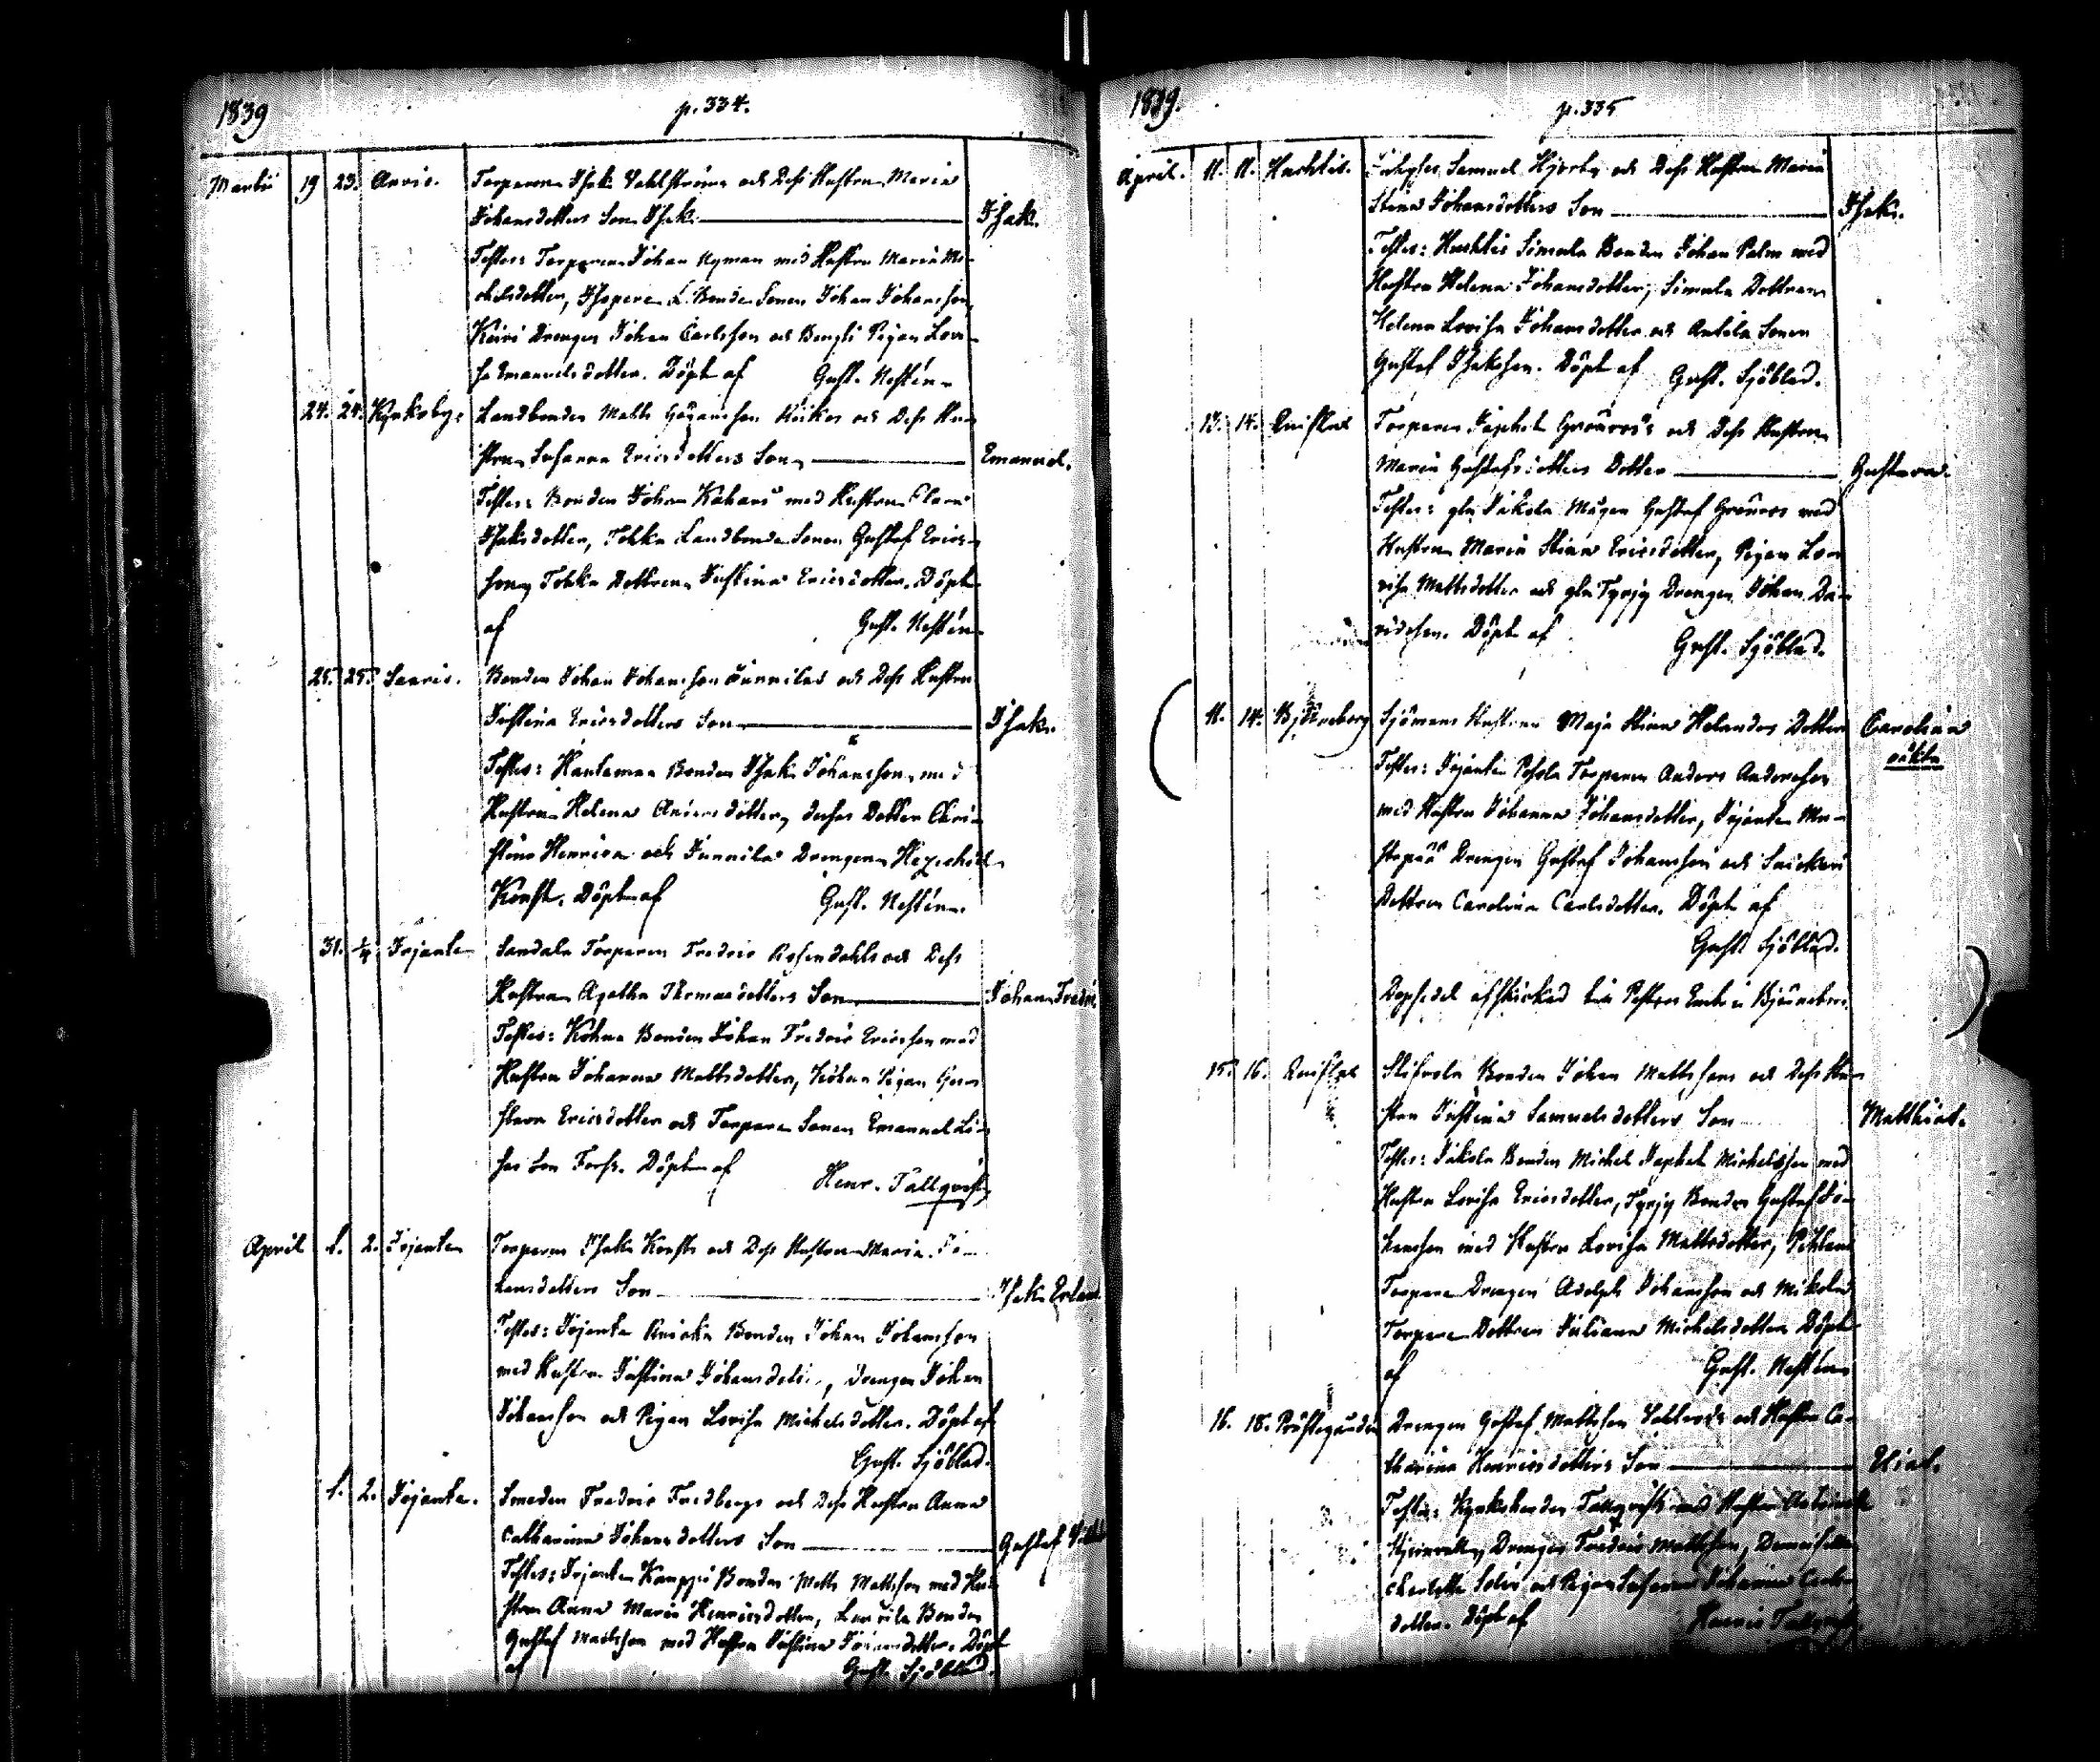 1839
p. 334.
Martii 19 23. Anvis. Torparen Isak Dahlströms och Dess Hustru Maria
Johansdotters Son Isak. Isak.
Testes: Torparen Johan Nyman med Hustru Maria Mi-
chelsdotter, Bonde Sonen Johan Johansson,
Drengen Johan Carlsson och Pigan Lovi-
sa Emanuelsdotter. Döpt af Gust. Nestén.
24. 24. Kyrkoby. Landbonden Matts och Dess Hu-
strus Susanna Ericsdotters Son Emanuel.
Testes: Bonden Johan med Hustru
Isaksdotter, Tokka Landbonde Sonen Gustaf Erics-
son, Tokka Dottren Justina Ericsdotter. Döpt
af Gust. Nestén
25. 25. Saaris. Bonden Johan Johansson Junnilas och Dess Hustru
Justina Ericsdotters Son Isak.
Testes: Hanteman Bonden Isak Johansson, med
Hustru Helena Andersdotter, deras Dotter Chri-
stina Henrica och Junnila Drengen
Konst. Döpt af Gust. Nestén.
31. 1/4 Irjante Sandala Torparen Fredric Rosendahls och Dess
Hustrus Agatha Thomasdotters Son Johan Fredric.
Testes: Kohna Bonden Johan Fredric Ericsson med
Hustru Johanna Mattsdotter, Köhna Pigan Gu-
stava Ericsdotter och Torpare Sonen Emanuel
Forss. Döpt af Henr. Tallqvist
April 1. 2. Irjante Torparen Isak Konsts och Dess Hustru Maria Jo-
hansdotters Son Isak Erland
Testes: Irjante Knickte Bonden Johan Johansson
med Hustru Justina Johansdotter, drengen Johan
Johansson och Pigan Lovisa Michelsdotter. Döpt af
Gust. Sjöblad.
1. 2. Irjante. Smeden Fredric Fredbergs och Dess Hustru Anna
Catharina Johansdotters Son Gustaf
Testes: Irjante Kauppi Bonden Matts Mattsson med Hu-
stru Anna Maria Henricsdotter, Laurila Bonden
Gustaf Mattsson med Hustru Justina Johansdotter. Döpt
af Gust. Sjöblad.
1839.
p. 335
April. 11. 11. Hurktis. Samuel Hjorts och Dess Hustru Maria
Stina Johansdotters Son Isak.
Testes: Hurktis Simula Bonden Johan Palm med
Hustru Helena Johansdotter, Simula Dottren
Helena Lovisa Johansdotter och Antila Sonen
Gustaf Isaksson. Döpt af Gust. Sjöblad.
13. 14. Torparen Japhet Grönroos och Dess Hustru
Maria Gustafsdotters Dotter Gustava.
Testes: gla Jakola Mågen Gustaf Grönroos med
Hustru Maria Stina Ericsdotter, Pigan Lo-
visa Mattsdotter och gla Tyrjy Drengen Johan Da-
vidsson. Döpt af Gust. Sjöblad.
11. 14. Björneborg Sjömans Hustrun Maja Stina Helanders Dotter Carolina
oäkta
Testes: Irjante Torparen Anders Andersson
med Hustru Johanna Johansdotter, Irjante
Drengen Gustaf Johansson och
Dottren Carolina Carlsdotter. Döpt af
Gust. Sjöblad.
Dopsedel afskickad till Pastors Emb. i Björneborg
15. 16. Bonden Johan Mattssons och Dess Hu-
stru Justina Samuelsdotters Son Matthias.
Testes: Jakola Bonden Michel Japhet Michelsson med
Hustru Lovisa Ericsdotter, Tyrjy Bonden Gustaf Jo-
hansson med Hustru Lovisa Mattsdotter,
Torpare Drengen Adolph Johansson och Mikola
Torpare Dottren Juliana Michelsdotter Döpt
af Gust. Nestén
16. 18. Prästegården Drengen Gustaf Mattsson och Hustru Ca-
tharina Henricsdotters Son Elias.
Testes: Kyrkoherden Tallqvist med Hustru
Drengen Fredric Mattsson, Demoiselle
Charlotta och Pigan Susanna Johanna Carls-
dotter. Döpt af Henric Tallqvist.